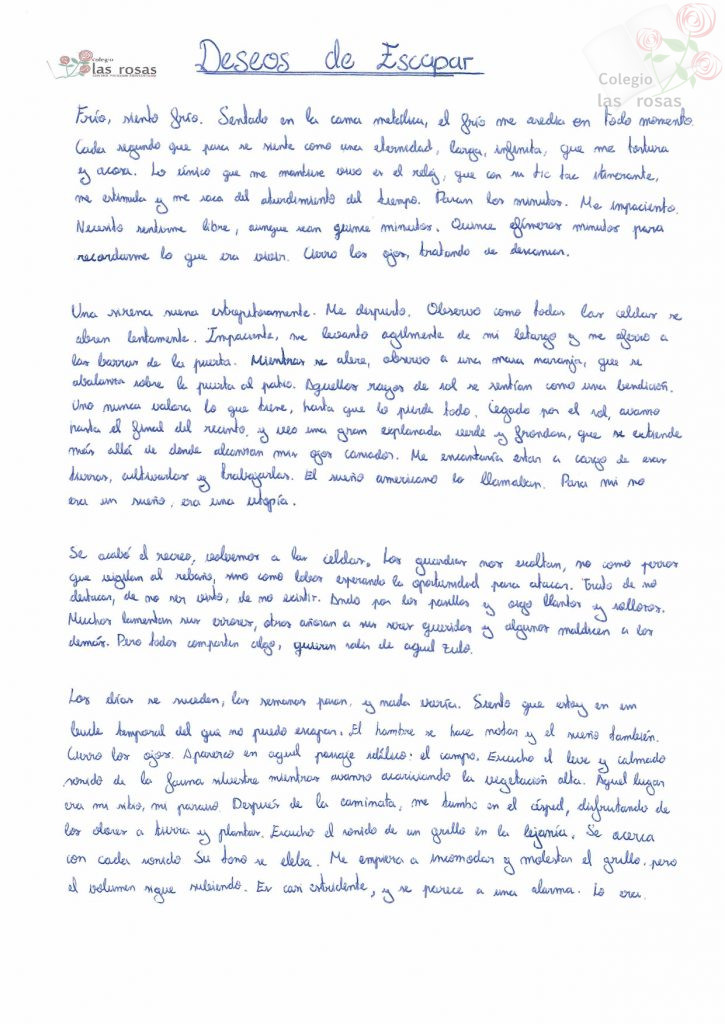 colegio
las rosas
Deseos de Escapar
Colegio
las rosas
Frío, siento frío. Sentado en la cama metálica, el frío me asedia en todo momento.
Cada segundo que pasa se siente como una eternidad, larga, infinita, que me tortura
y acosa. Lo único que me mantiene vivo es el reloj, que con su tic tac itinerante,
me estimula y me saca del aturdimiento del tiempo. Pasan los minutos. Me impaciento.
Necesito sentirme libre, aunque sean quince minutos. Quince efímeros minutos para
recordarme lo que era vivir. Cierro los ojos, tratando de descansar.
Una sirena suena estrepitosamente. Me despierto. Observo como todas las celdas se
abren lentamente. Impaciente, me levanto agilmente de mi letargo y me aferro a
las barras de la puerta. Mientras se abre, observo a una masa naranja, que se
abalanza sobre la puerta al patio. Aquellos rayos de sol se sentían como una bendición.
Uno nunca valora lo que tiene, hasta que lo pierde todo. Cegado por el sol, avanzo
hasta el final del recinto, y veo una gran explanada verde y frondosa, que se extiende
más allá de donde alcanzan mis ojos cansados. Me encantaría estar a cargo de esas
tierras, cultivarlas y trabajarlas. El sueño americano lo llamaban. Para mi no
era un sueño, era una utopía.
Se acabó el recreo, volvemos a las celdas. Los guardias nos escoltan, no como perros
que vigilan al rebaño, sino como lobos esperando la oportunidad para atacar. Trato de no
destacar, de no ser visto, de no existir. Ando por los pasillos y oigo llantos y sollozos.
Muchos lamentan sus errores, otros añoran a sus seres queridos y algunos maldicen a los
demás. Pero todos comparten algo, quieren salir de aquel zulo.
Los días se suceden, las semanas pasan, y nada varía. Siento que estoy en un
bucle temporal del que no puedo escapar. El hambre se hace notar y el sueño también.
Cierro los ojos. Aparezco en aquel paisaje idílico: el campo. Escucho el leve y calmado
sonido de la fauna silvestre mientras avanzo acariciando la vegetación alta. Aquel lugar
era mi sitio, mi paraiso. Después de la caminata, me tumbo en el césped, disfrutando de
los olores a tierra y plantas. Escucho el sonido de un grillo en la lejanía. Se acerca
con cada sonido Su tono se eleba. Me empieza a incomodar y molestar el grillo, pero
el volumen sigue subiendo. Es casi estridente, y se parece a una alarma. Lo era.